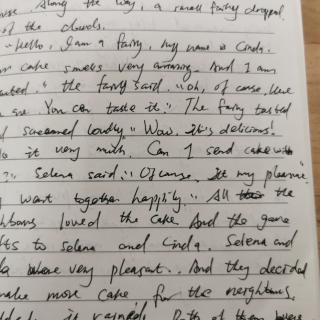 Along the way, a small fairy dropped
of the clouds.
"Hello, I am a fairy, my name is Cinda.
cake smells very amazing. And I am
" the fairy said. "Oh, of corse, Here
are. You can taste it." The fairy tasted
screamed loudly "Wow, it's delicious!
it very much. Can I send cake
?" Selena said: "Of corse. It my pleasure
want together happily." All the
loved the cake And the game
to Selena and Cinda. Selena and
where very pleasant. And they decided
make more cake for the neighbours.
it rained. Both of them